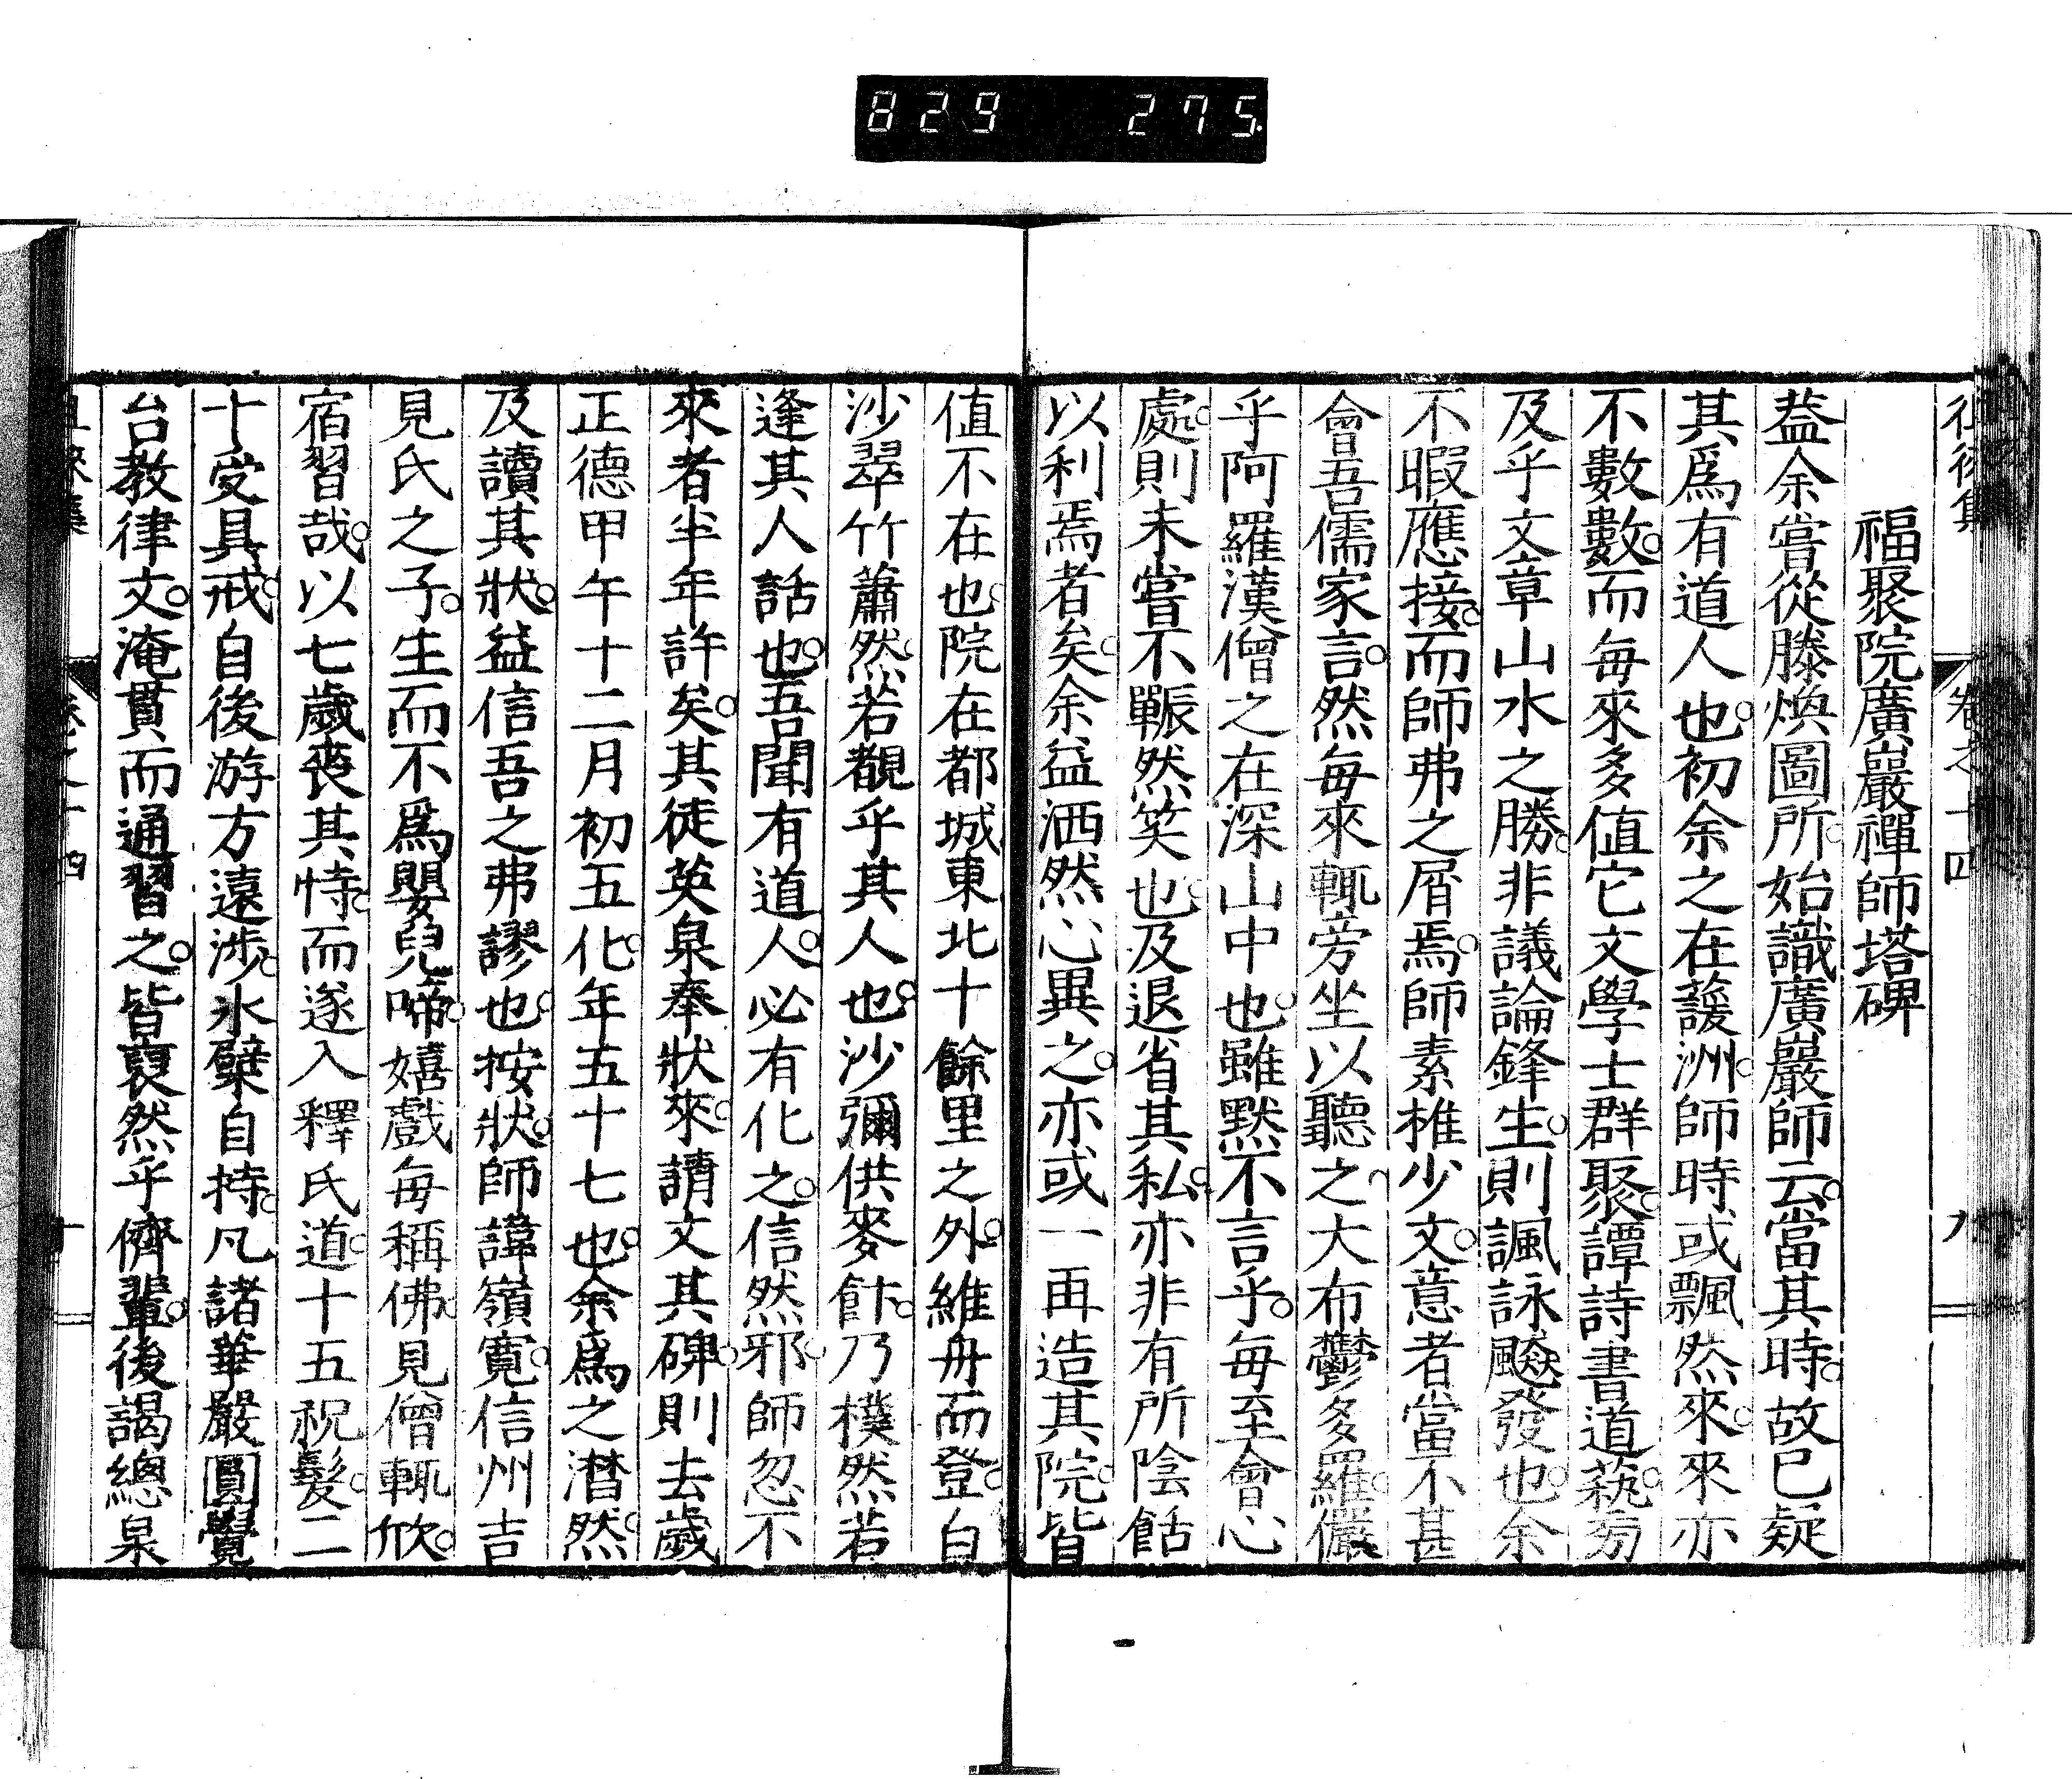 829 275.
卷之十四
福聚院廣嚴禪師塔碑
葢余嘗從滕煥圖所。始識廣巖師云。當其時。故已疑
其爲有道人也。初余之在䕶洲。師時或飄然來。來亦
不數數。而每來多値它文學士群聚。譚詩書道藝。旁
及乎文章山水之勝。非議論鋒生。則諷詠飈發也。余
不暇應接。而師弗之屑焉。師素椎少文。意者當不甚
會吾儒家言。然每來輒旁坐以聽之。大布鬱多羅。儼
乎阿羅漢僧之在深山中也。雖默不言乎。每至會心
處。則未嘗不囅然笑也。及退省其私。亦非有所陰餂
以利焉者矣。余益洒然心異之。亦或一再造其院。皆
値不在也。院在都城東北十餘里之外。維舟而登。白
沙翠竹蕭然。若覩乎其人也。沙彌供麥飰。乃樸然若
逢其人話也。吾聞有道人。必有化之。信然邪。師忽不
來者半年許矣。其徒英泉奉狀來。請文其碑。則去歲
正德甲午十二月初五化。年五十七也。余爲之潸然
及讀其狀。益信吾之弗謬也。按狀。師諱嶺寛。信州吉
見氏之子。生而不爲嬰兒啼。嬉戲每稱佛。見僧輒欣。
宿習哉。以七歲喪其恃。而遂入釋氏道。十五祝髮。二
十受具戒。自後游方遠涉。氷糵自持。凡諸華嚴圓覺
台教律文。淹貫而通習之。皆裒然乎儕輩。後謁總泉